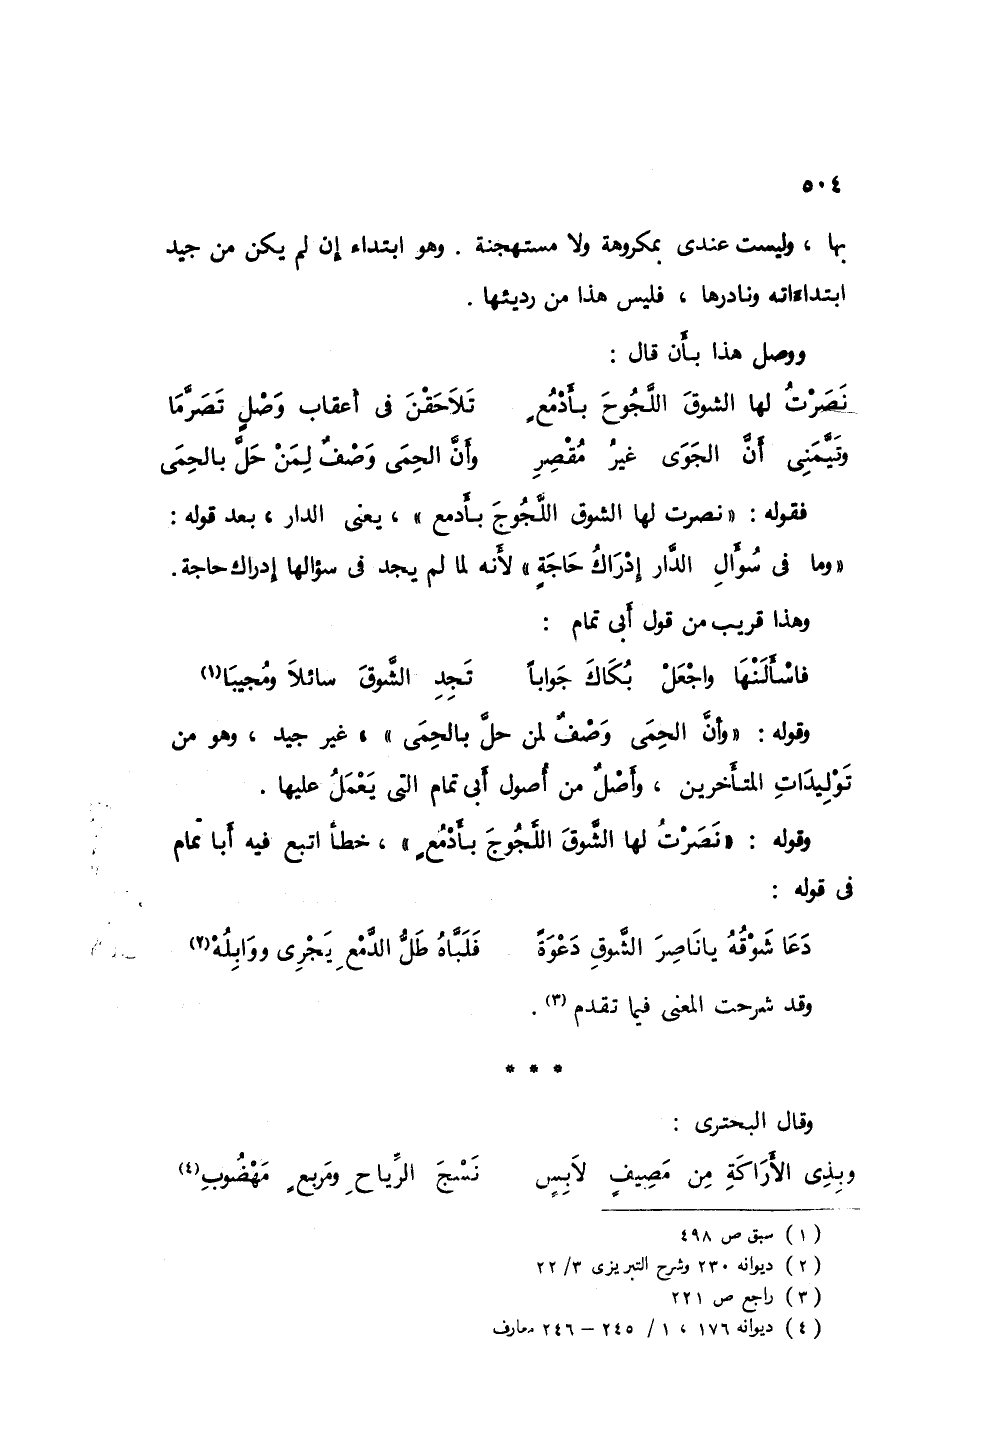 ٥٠٤
بها ، وليست عندى بمكروهة ولا مستهجنة . وهو ابتداء إن لم يكن من جيد
ابتداءاته ونادرها ، فليس هذا من رديئها .
ووصل هذا بأَن قال :
نَصَرْتُ لها الشوقَ اللَّجُوحَ بأَدْمُعٍ تَلاَحَقْنَ فى أعقاب وَصْلٍ تَصَرَّمَا
وتَيَّمَنِى أَنَّ الجَوَى غيرُ مُقْصِرِ وأَنَّ الحِمَى وَصْفٌ لِمَنْ حَلَّ بالحِمَى
فقوله : «نصرت لها الشوق اللَّجُوجَ بأَدمع » ، يعنى الدار ، بعد قوله :
«وما فى سُؤَالِ الدَّار إدْرَاكُ حَاجَةٍ» لأَنه لما لم يجد فى سؤالها إدراك حاجة .
وهذا قريب من قول أَبى تمام :
فاسْأَلَنْهَا واجْعَلْ بُكَاكَ جَواباً تَجِدِ الشَّوقَ سائلاَ ومُجيبَا(١)
وقوله : «وأَنَّ الحِمَى وَصْفٌ لمن حلَّ بالحِمَى » ، غير جيد ، وهو من
تَوْلِيدَاتِ المتأَخرين ، وأَصْلٌ من أُصول أَبى تمام التى يَعْمَلُ عليها .
وقوله : «نَصَرْتُ لها الشَّوقَ اللَّجُوجَ بأَدْمُعٍ» ، خطأ اتبع فيه أَبا تمام
فى قوله :
دَعَا شَوْقُهُ يانَاصِرَ الشَّوقِ دَعْوَةً فَلَبَّاهُ طَلُّ الدَّمْعِ يَجْرِى ووَابِلُهْ(٢)
وقد شرحت المعنى فيما تقدم (٣) .
* * *
وقال البحترى :
وبِذِى الأَرَاكَةِ مِن مَصِيفٍ لاَبِسٍ نَسْجَ الرِّياحِ ومَربعٍ مَهْضُوبِ(٤)
(١) سبق ص ٤٩٨
(٢) ديوانه ٢٣٠ وشرح التبريزى ٣/ ٢٢
(٣) راجع ص ٢٢١
(٤) ديوانه ١٧٦ ، ١/ ٢٤٥ – ٢٤٦ معارف